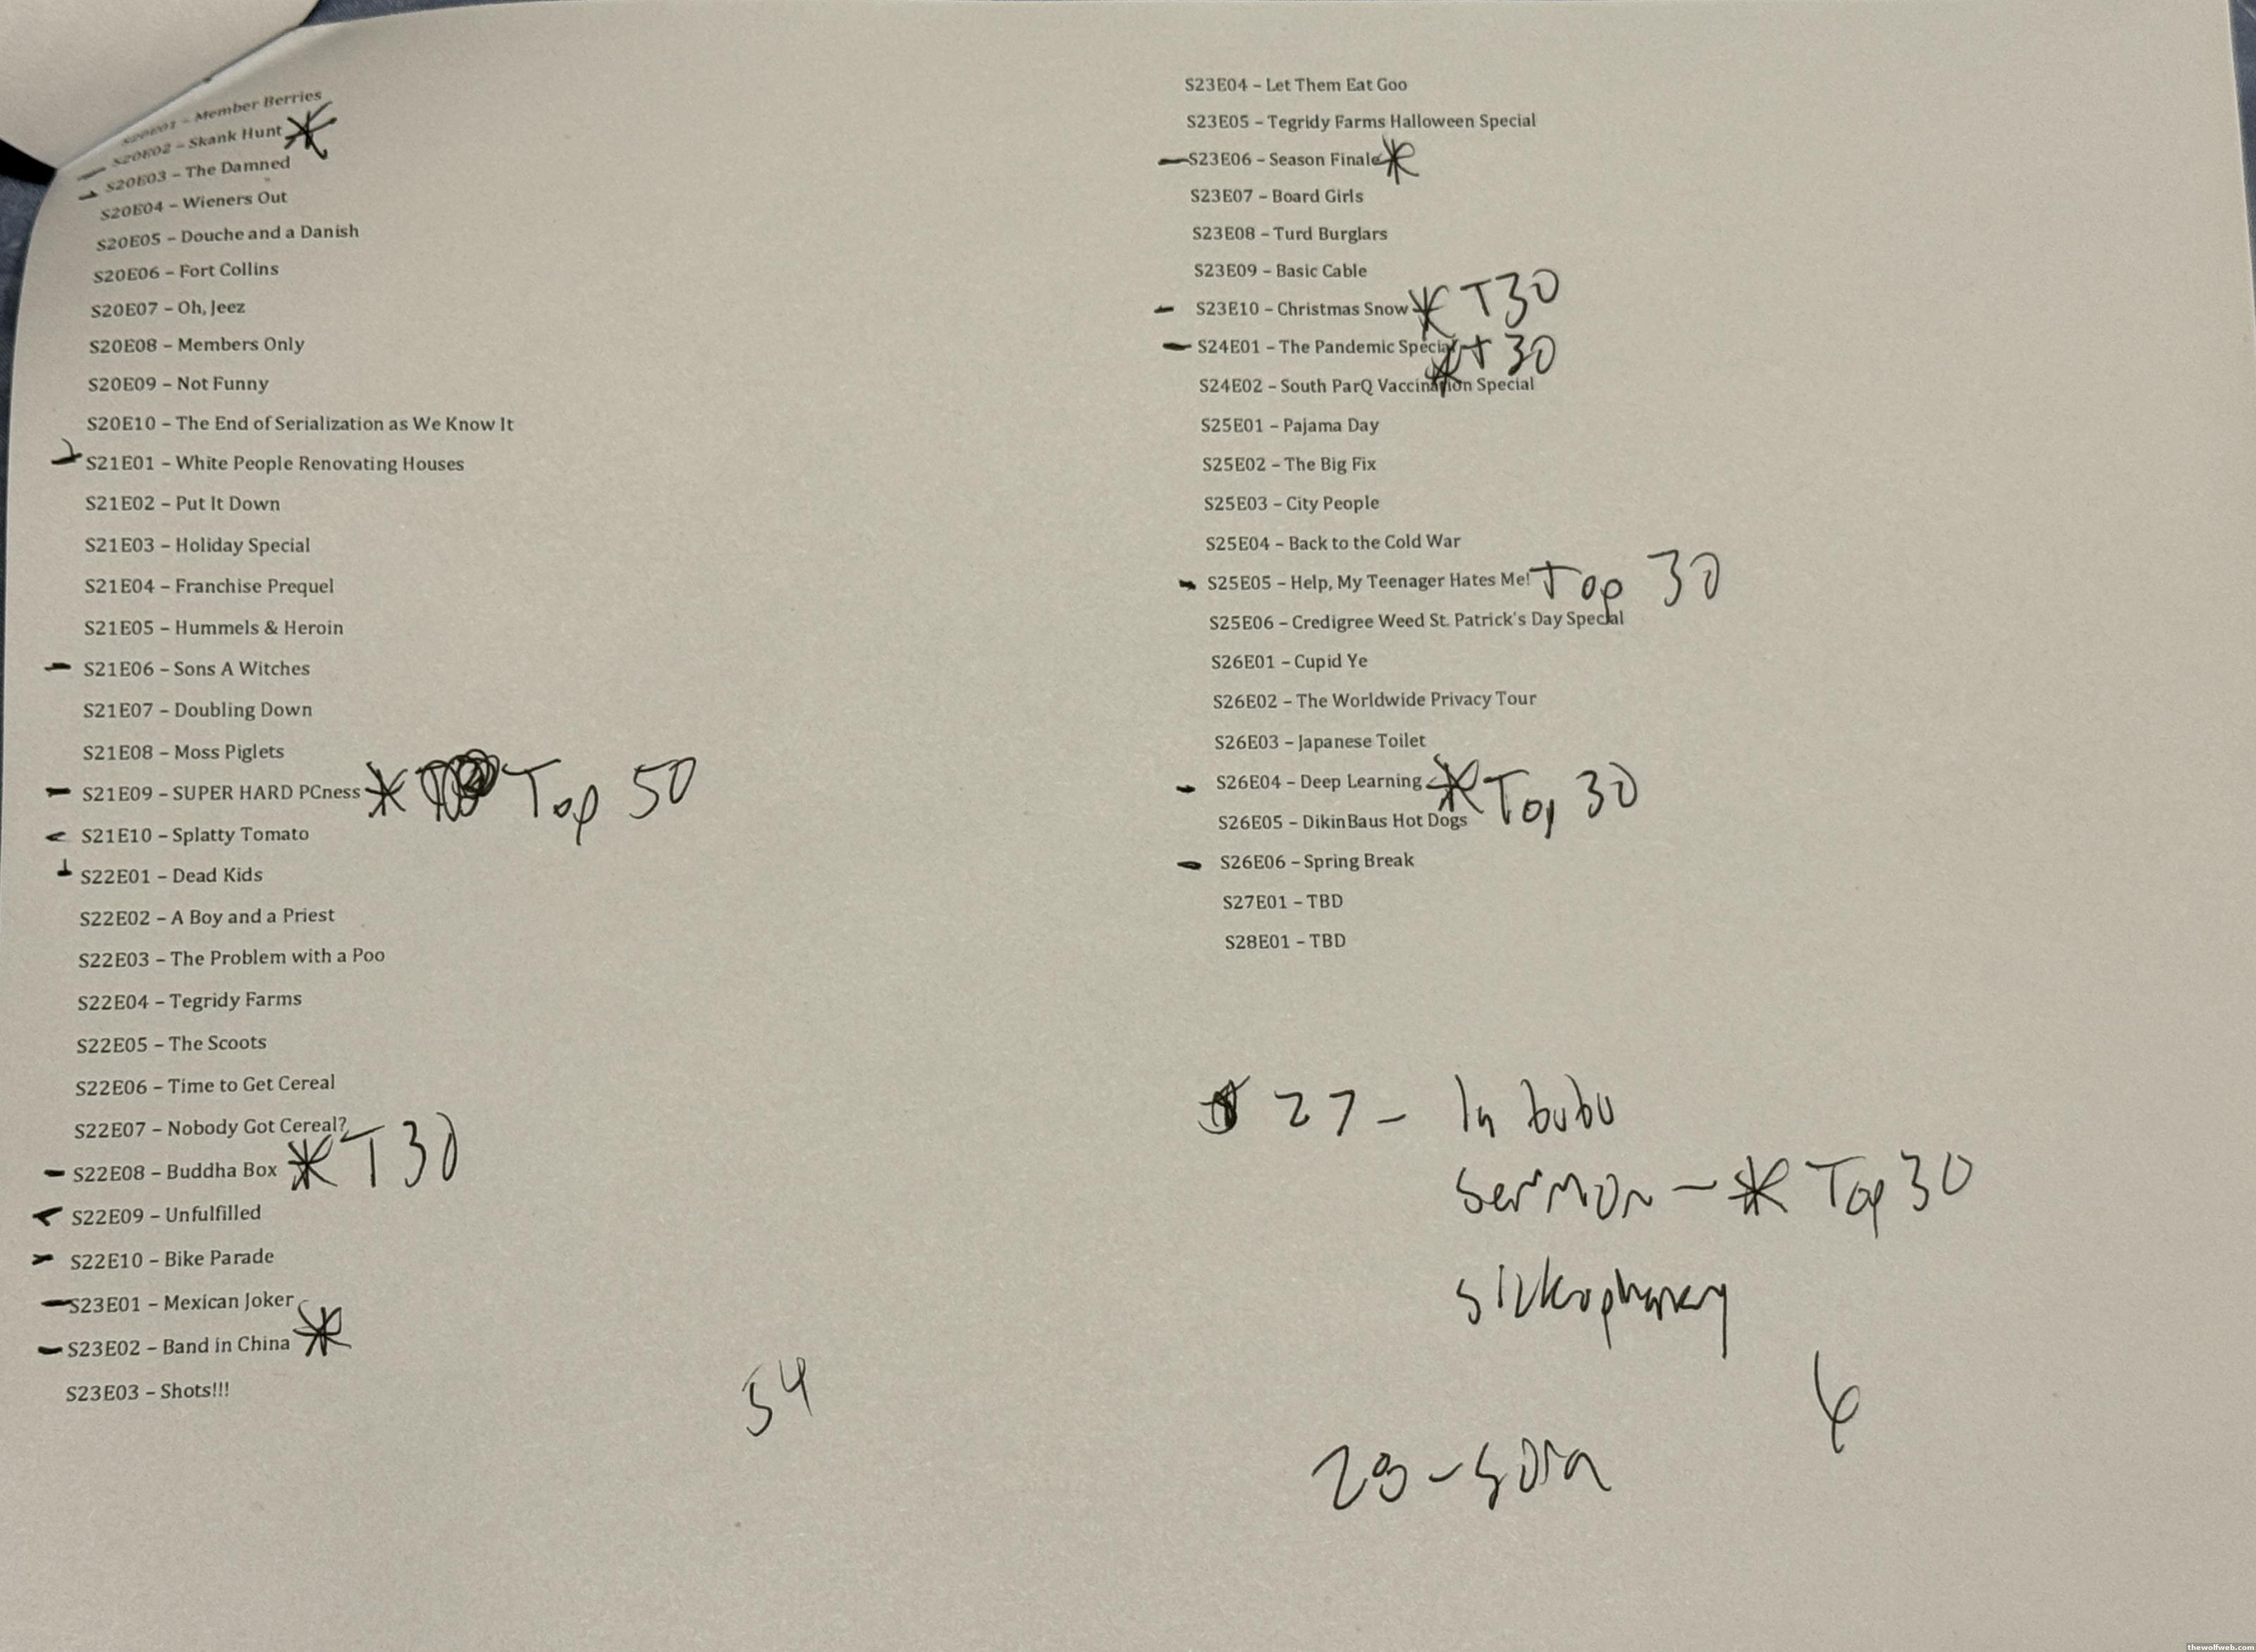 S20E01 – Member Berries
S20E02 – Skank Hunt *
S20E03 – The Damned
S20E04 – Wieners Out
S20E05 – Douche and a Danish
S20E06 – Fort Collins
S20E07 – Oh, Jeez
S20E08 – Members Only
S20E09 – Not Funny
S20E10 – The End of Serialization as We Know It
S21E01 – White People Renovating Houses
S21E02 – Put It Down
S21E03 – Holiday Special
S21E04 – Franchise Prequel
S21E05 – Hummels & Heroin
– S21E06 – Sons A Witches
S21E07 – Doubling Down
S21E08 – Moss Piglets
– S21E09 – SUPER HARD PCness * Top 50
S21E10 – Splatty Tomato
S22E01 – Dead Kids
S22E02 – A Boy and a Priest
S22E03 – The Problem with a Poo
S22E04 – Tegridy Farms
S22E05 – The Scoots
S22E06 – Time to Get Cereal
S22E07 – Nobody Got Cereal?
– S22E08 – Buddha Box * T30
S22E09 – Unfulfilled
S22E10 – Bike Parade
– S23E01 – Mexican Joker
– S23E02 – Band in China *
S23E03 – Shots!!!
54
S23E04 – Let Them Eat Goo
S23E05 – Tegridy Farms Halloween Special
– S23E06 – Season Finale *
S23E07 – Board Girls
S23E08 – Turd Burglars
S23E09 – Basic Cable
– S23E10 – Christmas Snow * T30
– S24E01 – The Pandemic Special * T30
S24E02 – South ParQ Vaccination Special
S25E01 – Pajama Day
S25E02 – The Big Fix
S25E03 – City People
S25E04 – Back to the Cold War
– S25E05 – Help, My Teenager Hates Me! Top 30
S25E06 – Credigree Weed St. Patrick's Day Special
S26E01 – Cupid Ye
S26E02 – The Worldwide Privacy Tour
S26E03 – Japanese Toilet
– S26E04 – Deep Learning * Top 30
S26E05 – DikinBaus Hot Dogs
– S26E06 – Spring Break
S27E01 – TBD
S28E01 – TBD
27 – la bubu
sermon – * Top 30
6
28 – sora
thewolfweb.com